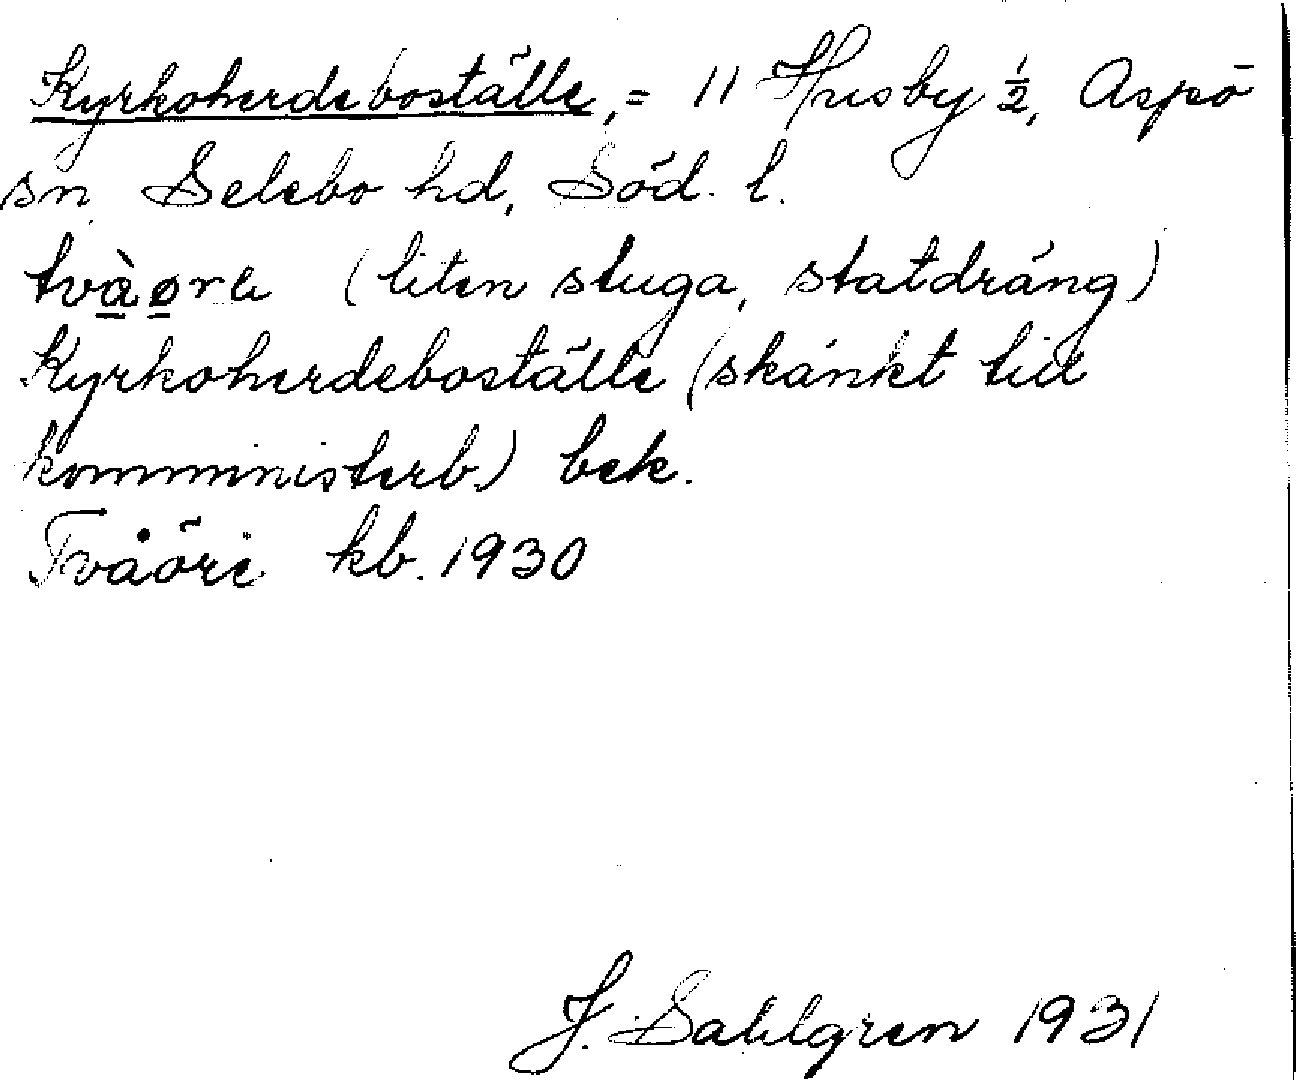 Kyrkoherdeboställe, = 11 Husby ½, Aspö
sn, Selebo hd, Söd. l.
tvàøre (liten stuga, statdräng)
Kyrkoherdeboställe (skänkt till
komministerb.) bek.
Tvåöre kb. 1930
J. Sahlgren 1931